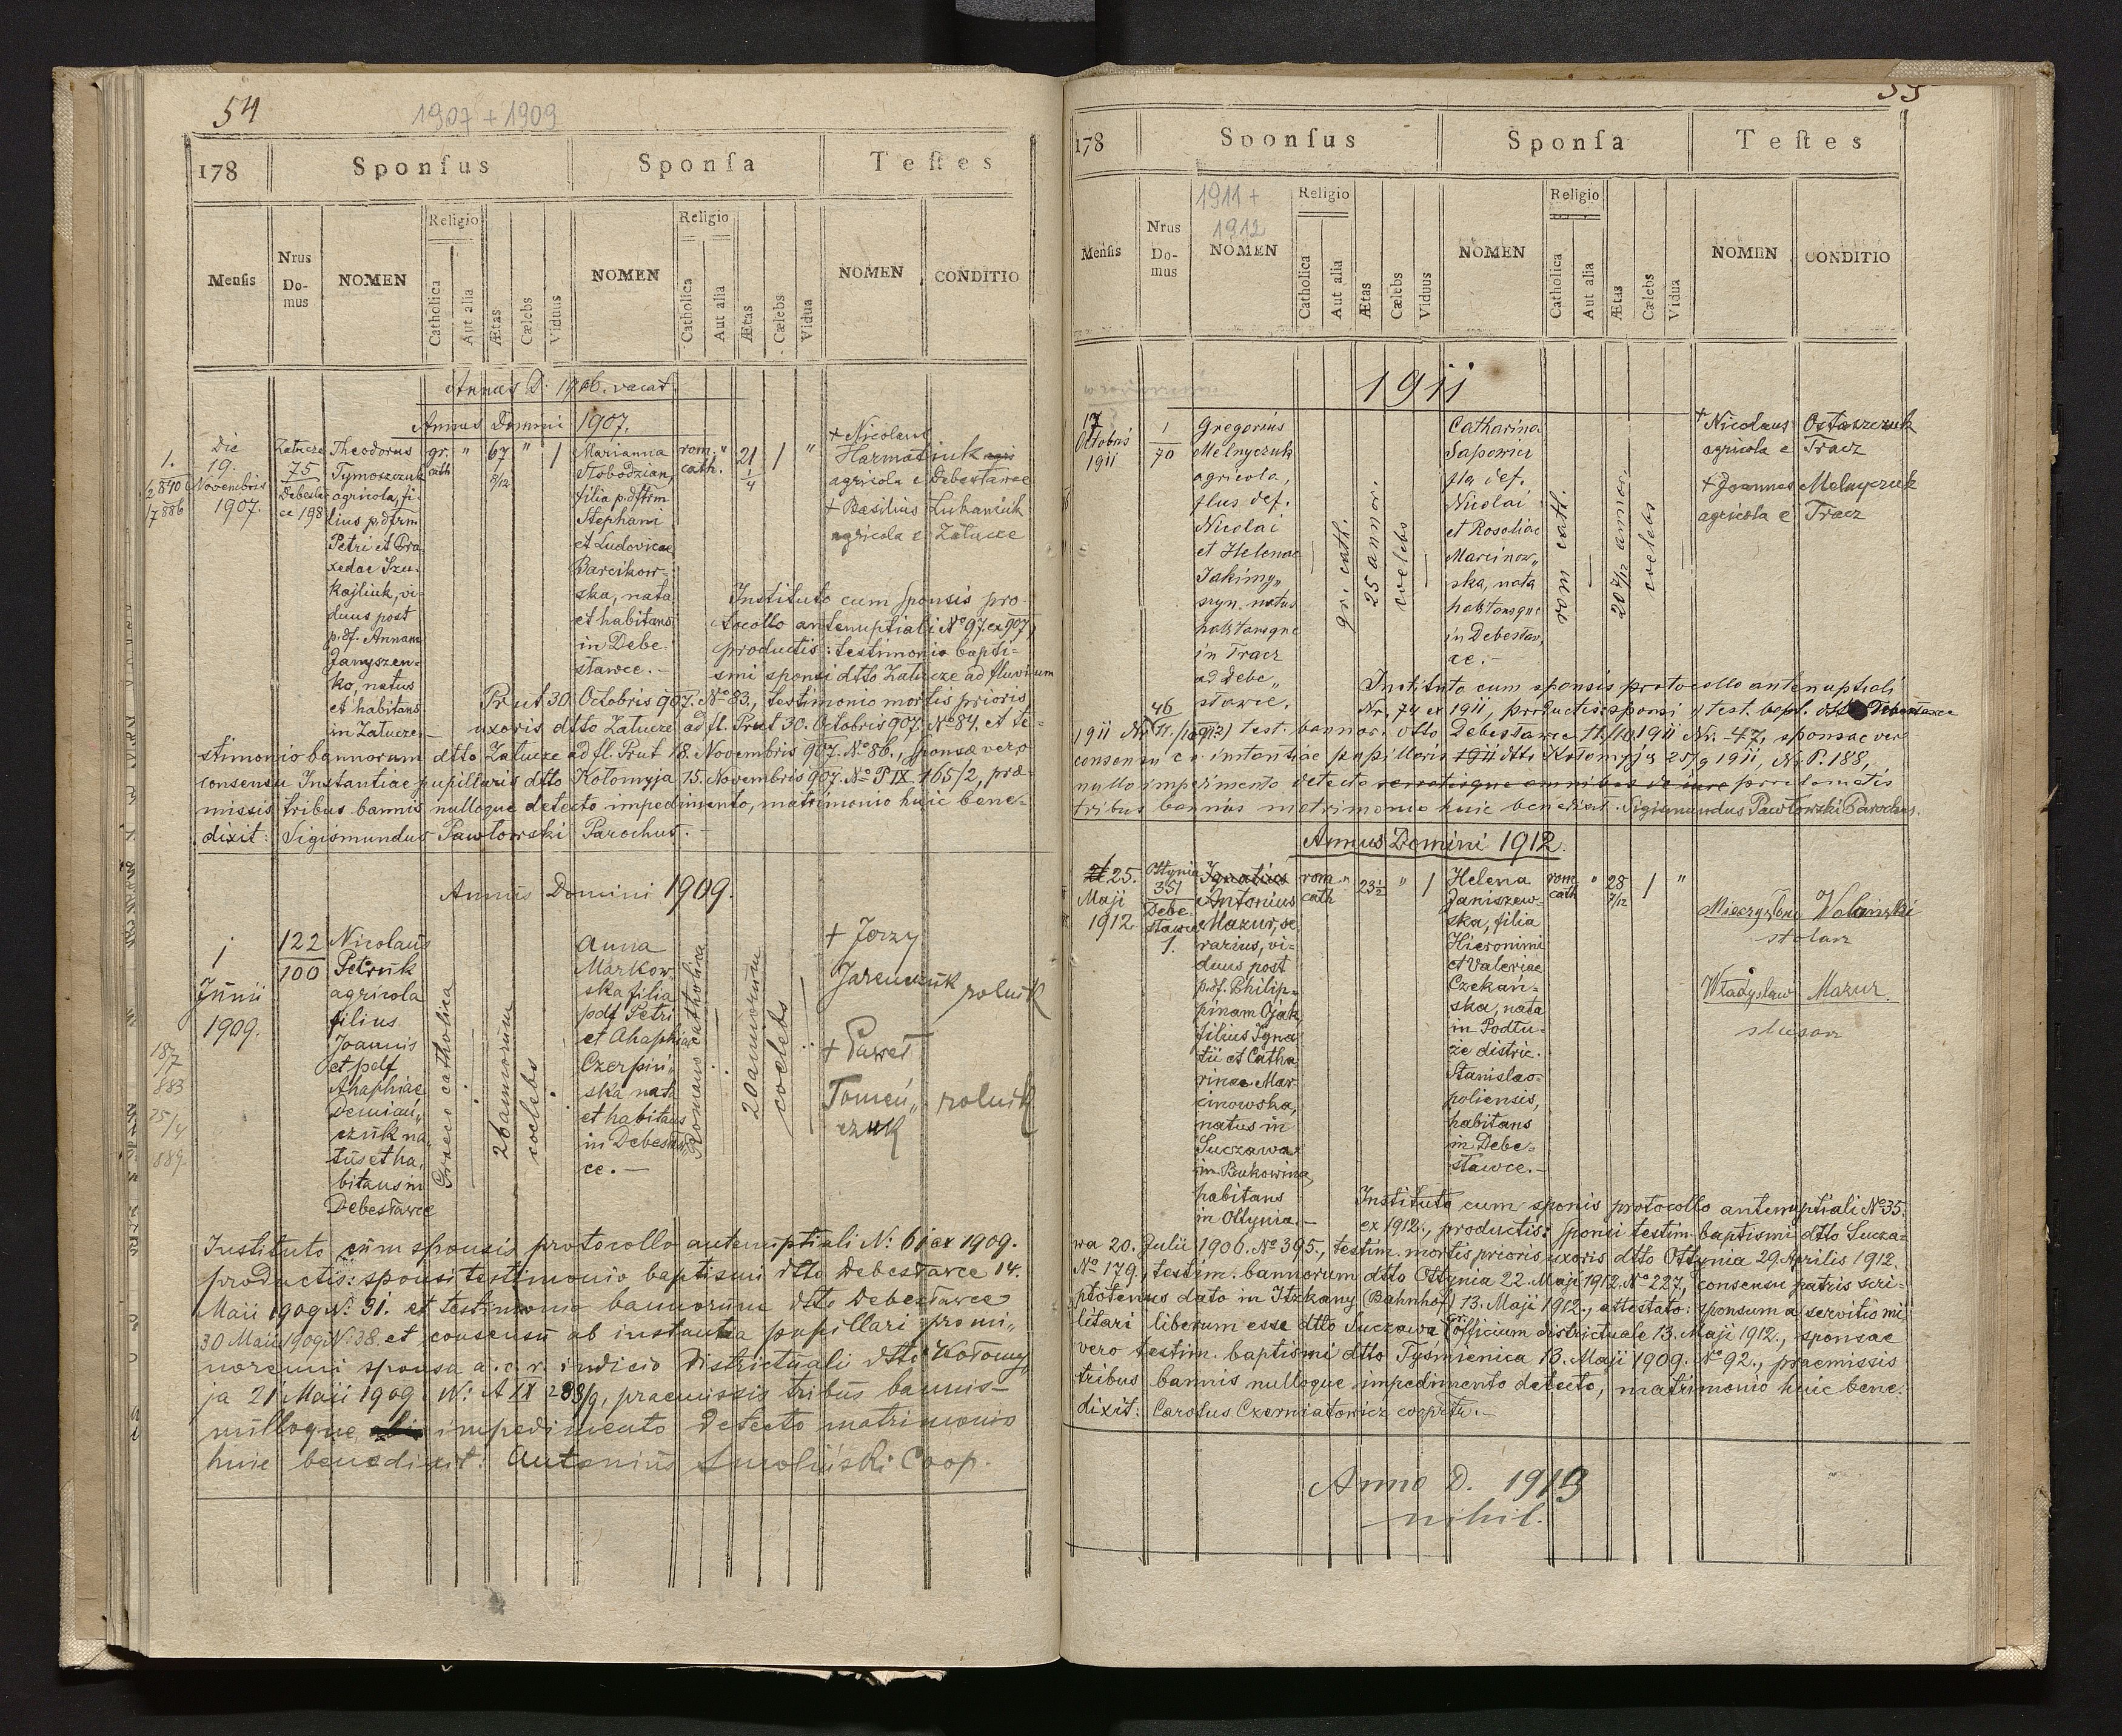 54
1907 + 1909
178 Sponſus Sponſa Teſtes
Religio Religio
Menſis Nrus Do- mus NOMEN Catholica Aut alia Ætas Cælebs Viduus NOMEN Catholica Aut alia Ætas Cælebs Vidua NOMEN CONDITIO
Annus D. 1906. vacat.
Annus Domini 1907.
1.
Die
19.
Novembris
1907.
Zatucze
75
Debesła-
ce 198
Theodorus
Tymoszczuk
agricola, fi-
lius p.dftrm
Petri et Pra-
xedae Szu-
kajliuk, vi-
duus post
p.df. Annam
Janyszen-
ko, natus
et habitans
in Załucze.-
gr.
cath
"
67
8/12
"
1
Marianna
Słobodzian,
filia p.dftrm
Stephani
et Ludovicae
Barcikow-
ska, nata
et habitans
in Debe-
sławce.-
rom.
cath.
"
21
1/4
1
"
+ Nicolaus
Harmatiuk
agricola e Debesławce
+ Basilius Lukaniuk
agricola e Załucze
Instituto cum sponsis pro-
tocollo antenuptiali No 97 ex 907,
productis: testimonio bapti-
smi sponsi dtto Załucze ad fluvium
Prut 30. Octobris 907. No 83., testimonio mortis prioris
uxoris dtto Załucze ad fl. Prut 30. Octobris 907. No 84. et te-
stimonio bannorum dtto Załucze ad fl. Prut 18. Novembris 907. No 86., sponsae vero
consensu Instantiae pupillaris dtto Kołomyja 15. Novembris 907. No P IX 165/2, prae-
missis tribus bannis nulloque detecto impedimento, matrimonio huic bene-
dixit: Sigismundus Pawłowski Parochus.-
Annus Domini 1909.
1
Junii
1909.
122
100
Nicolaus
Petruk
agricola
filius
Joannis
et pdf
Ahaphiae
Demiań-
czuk na-
tus et ha-
bitans in
Debesławce
Graeco catholica
26 annorum
coelebs
Anna
Markow-
ska filia
pdf Petri
et Ahaphiae
Czerpiń-
ska nata
et habitans
in Debesław-
ce.-
Romano catholica
20 annorum
coelebs
+ Jerzy
Jaremczuk rolnik
+ Paweł
Tomeń- rolnik
czuk
Instituto cum sponsis protocollo antenuptiali N: 61 ex 1909.
productis: sponsi testimonio baptismi dtto Debesławce 14.
Maii 1909 N: 31. et testimonio bannorum dtto Debesławce
30 Maii 1909 N: 38. et consensu ab instantia pupillari pro mi-
norenni sponsa a. c. r. iudicio districtuali dtto Kołomy-
ja 21 Maii 1909 N: A IX 288/9, praemissis tribus bannis
nulloque impedimento detecto matrimonio
huic benedixit: Antonius Smoliński Coop.
55
178 Sponſus Sponſa Teſtes
1911 +
1912
Religio Religio
Menſis Nrus Do- mus NOMEN Catholica Aut alia Ætas Cælebs Viduus NOMEN Catholica Aut alia Ætas Cælebs Vidua NOMEN CONDITIO
1911
17
Octobris
1911
1
70
Gregorius
Melnyczuk
agricola,
flus def.
Nicolai
et Helenae
Jakimy-
szyn. natus
habitansque
in Tracz
ad Debe-
sławce.
gr. cath.
25 annor.
coelebs
Catharina
Sapowicz
fla def.
Nicolai
et Rosaliae
Marcinow-
ska, nata
habtansque
in Debesław-
ce.-
rom cath.
20 7/12 annor.
coelebs
+ Nicolaus Ostaszczuk
agricola e Tracz
+ Joannes Melnyczuk
agricola e Tracz
Instituto cum sponsis protocollo antenuptiali
Nr. 74 ex 1911, productis: sponsi 1) test. bapt. dtto Debesławce
1911 Nr. 46 2) test. bannor. dtto Debesławce 1911 Nr. 47, sponsae vero
consensu c. r. instantiae pupillaris dtto Kołomyja 25/9 1911, Nr. P. 188,
nullo impedimento detecto servatisque omnibus de iure proclamatis
tribus bannis matrimonio huic benedixit. Sigismundus Pawłowski Parochus.
Annus Domini 1912.
25.
Maji
1912.
Ottynia
351
Debe-
sławce
1.
Ignatius
Antonius
Mazur, se-
rarius, vi-
duus post
p.df. Philip-
pinam Ojak,
filius Igna-
tii et Catha-
rinae Mar-
cinowska,
natus in
Suczawa
in Bukowina,
habitans
in Ottynia.-
rom
cath
"
23 1/2
"
1
Helena
Janiszew-
ska, filia
Hieronimi
et Valeriae
Czekań-
ska, nata
in Podłu-
że distric.
Stanislao-
poliensis,
habitans
in Debe-
sławce.-
rom
cath
"
28
7/12
1
"
Mieczysław Wolański
stolarz
Władysław Mazur.
ślusarz
Instituto cum sponsis protocollo antenuptiali No 35.
ex 1912., productis: sponsi testim. baptismi dtto Sucza-
wa 20. Julii 1906. No 395., testim. mortis prioris uxoris dtto Ottynia 29. Aprilis 1912.
No 179., testim. bannorum dtto Ottynia 22. Maji 1912. No 227., consensu patris scri-
ptotenus dato in Itzkany (Bahnhof) 13. Maji 1912., attestato: sponsum a servitio mi-
litari liberum esse dtto Suczawa officium districtuale 13. Maji 1912., sponsae
vero testim. baptismi dtto Tyśmienica 13. Maji 1909. No 92., praemissis
tribus bannis nulloque impedimento detecto, matrimonio huic bene-
dixit: Carolus Czerniatowicz cooprtr.-
Anno D. 1913
nihil.